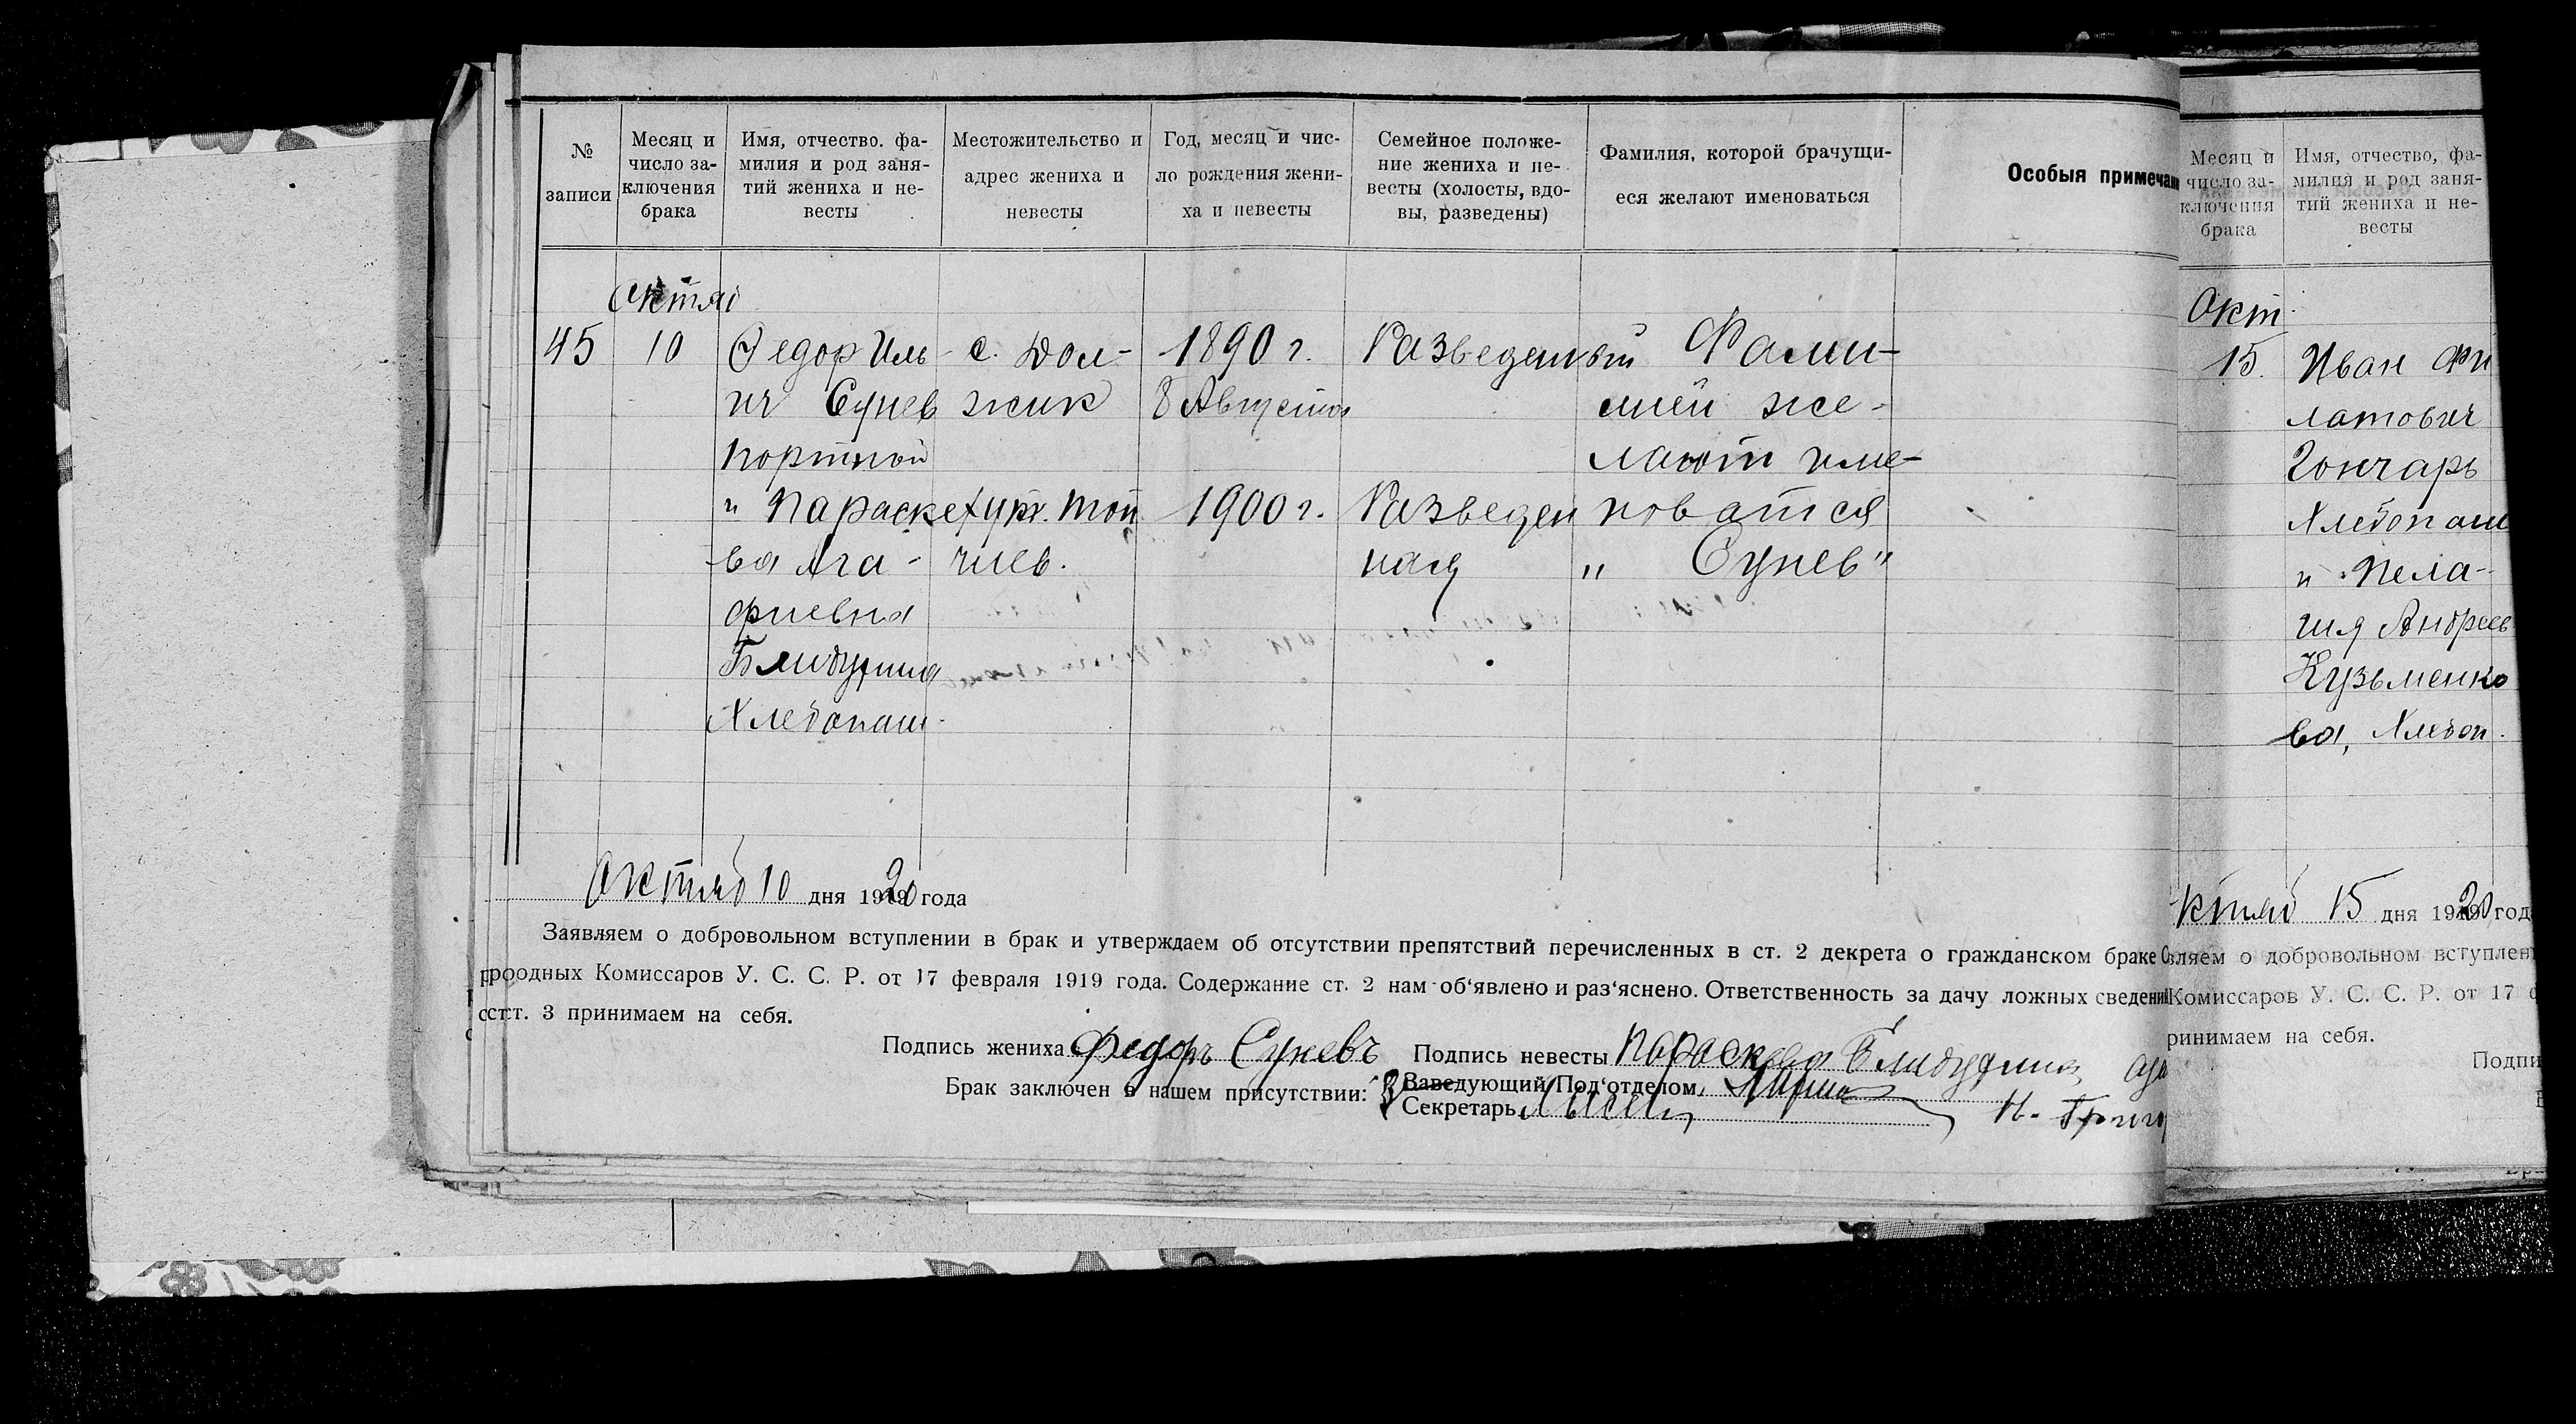 № записи
Месяц и число заключения брака
Имя, отчество. фамилия и род занятий жениха и невесты
Местожительство и адрес жениха и невесты
Год, месяц и число рождения жениха и невесты
Семейное положение жениха и невесты (холосты, вдовы, разведены)
Фамилия, которой брачущиеся желают именоваться
Особыя примечан
октяб
45
10
Федор Иль-
ич Сунев
портной
и Параске
ва Ага-
фиевна
Хлебопаш-
с. Дол-
жик
хут. Той
чиев.
1890 г.
8 Августа
1900 г.
Разведеный
Разведен
ная
Фами-
лией же-
лают име-
новатся
" Сунев"
Октяб 10 дня 1920 года
Заявляем о добровольном вступлении в брак и утверждаем об отсутствии препятствий перечисленных в ст. 2 декрета о гражданском браке С
родных Комиссаров У. С. С. Р. от 17 февраля 1919 года. Содержание ст. 2 нам об'явлено и раз'яснено. Ответственность за дачу ложных сведени
ст. 3 принимаем на себя.
Подпись жениха Федоръ Суневъ Подпись невесты Параскева
Брак заключен в нашем присутствии:
Заведующий Под'отделом
Секретарь
Месяц и число заключения брака
Имя, отчество, фамилия и род занятий жениха и невесты
Окт.
15.
Иван Фи
латович
Гончарь
Хлебопаш
и Пела-
гия Андреев
Кузьменко
ва, Хлебоп.
ктяб 15 дня 1920 год
вляем о добровольном вступлен
Комиссаров У. С. С. Р. от 17 ф
ринимаем на себя.
Подпи